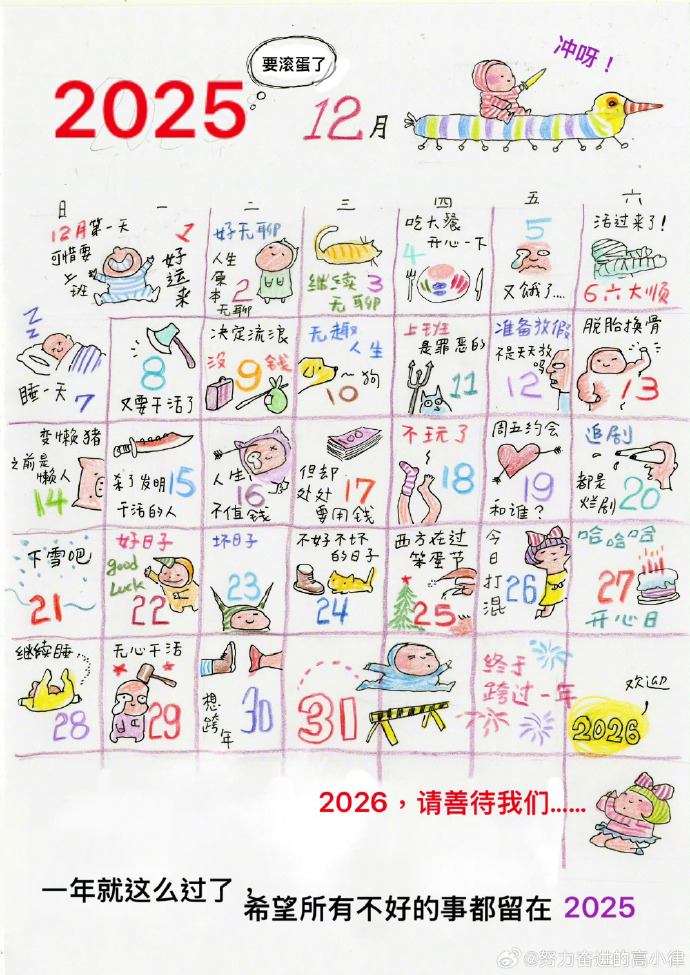 要滚蛋了
2025
12月
冲呀！
日 一 二 三 四 五 六
12月第一天
可惜要
上班
1
好运来
好无聊
人生
原本
无聊
2
继续
无聊
3
吃大餐
开心一下
4
5
又饿了...
活过来了!
6六大顺
zzz
睡一天
7
8
又要干活了
决定流浪
没钱
9
无趣
人生
~狗
10
上班
是罪恶的
11
准备放假
不是天天放
吗
12
脱胎换骨
13
变懒猪
之前是
懒人
14
杀了发明
干活的人
15
人生
不值钱
16
但却
处处
要用钱
17
不玩了
18
周五约会
和谁?
19
追剧
都是
烂剧
20
下雪吧
21
好日子
good
Luck
22
坏日子
23
不好不坏
的日子
24
西方在过
笨蛋节
25
今日打混
26
哈哈哈
27
开心日
继续睡
28
无心干活
29
想跨年
30
31
终于
跨过一年
欢迎
2026
2026，请善待我们……
一年就这么过了，
希望所有不好的事都留在 2025
@努力奋进的高小律